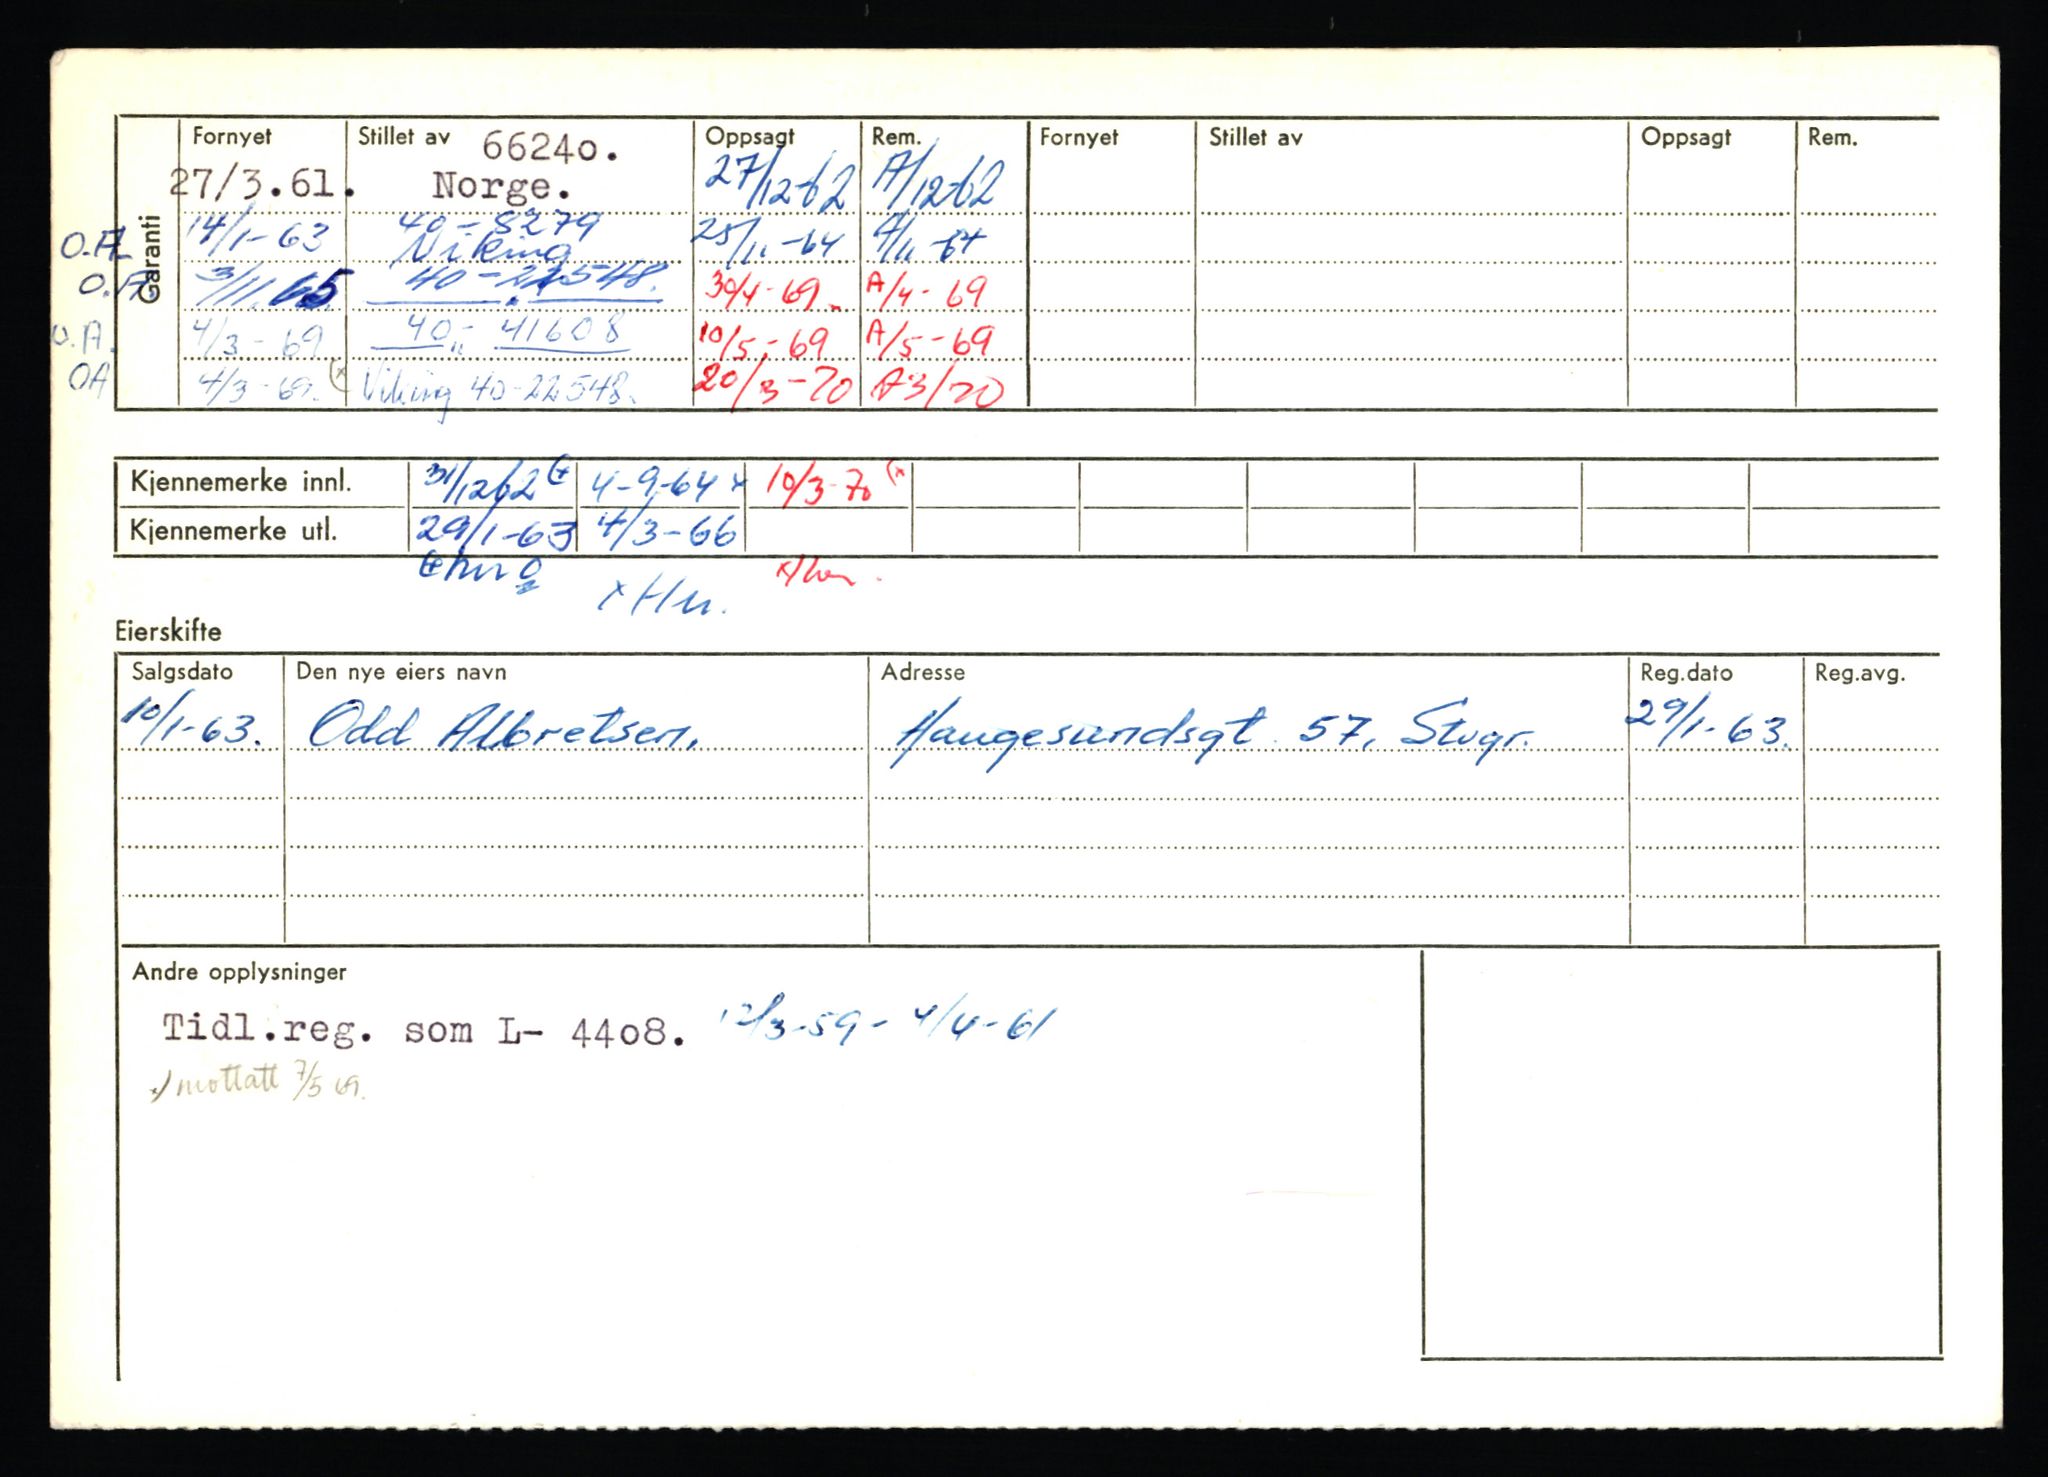 Fornyet Stillet av 6624o. Oppsagt Rem. Fornyet Stillet av Oppsagt Rem.
27/3.61. Norge. 27/12-62 A/12-62
Garanti
O.A. 14/1-63 40-8279 25/11-64 A/11-64
Viking
O.A. 3/11.65 40-22548. 30/4-69 A/4-69
O.A. 4/3-69 40-41608 10/5-69 A/5-69
OA 4/3-69. (x Viking 40-22548. 20/3-70 A3/70
Kjennemerke innl. 31/12 62 (+ 4-9-64 x 10/3-70 (x
Kjennemerke utl. 29/1-63 4/3-66
x Hu.
Eierskifte
Salgsdato Den nye eiers navn Adresse Reg.dato Reg.avg.
10/1-63. Odd Albretsen, Haugesundsgt. 57, Stvgr. 29/1-63.
Andre opplysninger
Tidl.reg. som L- 44o8. 12/3-59 - 4/4-61
x) mottatt 7/5 69.